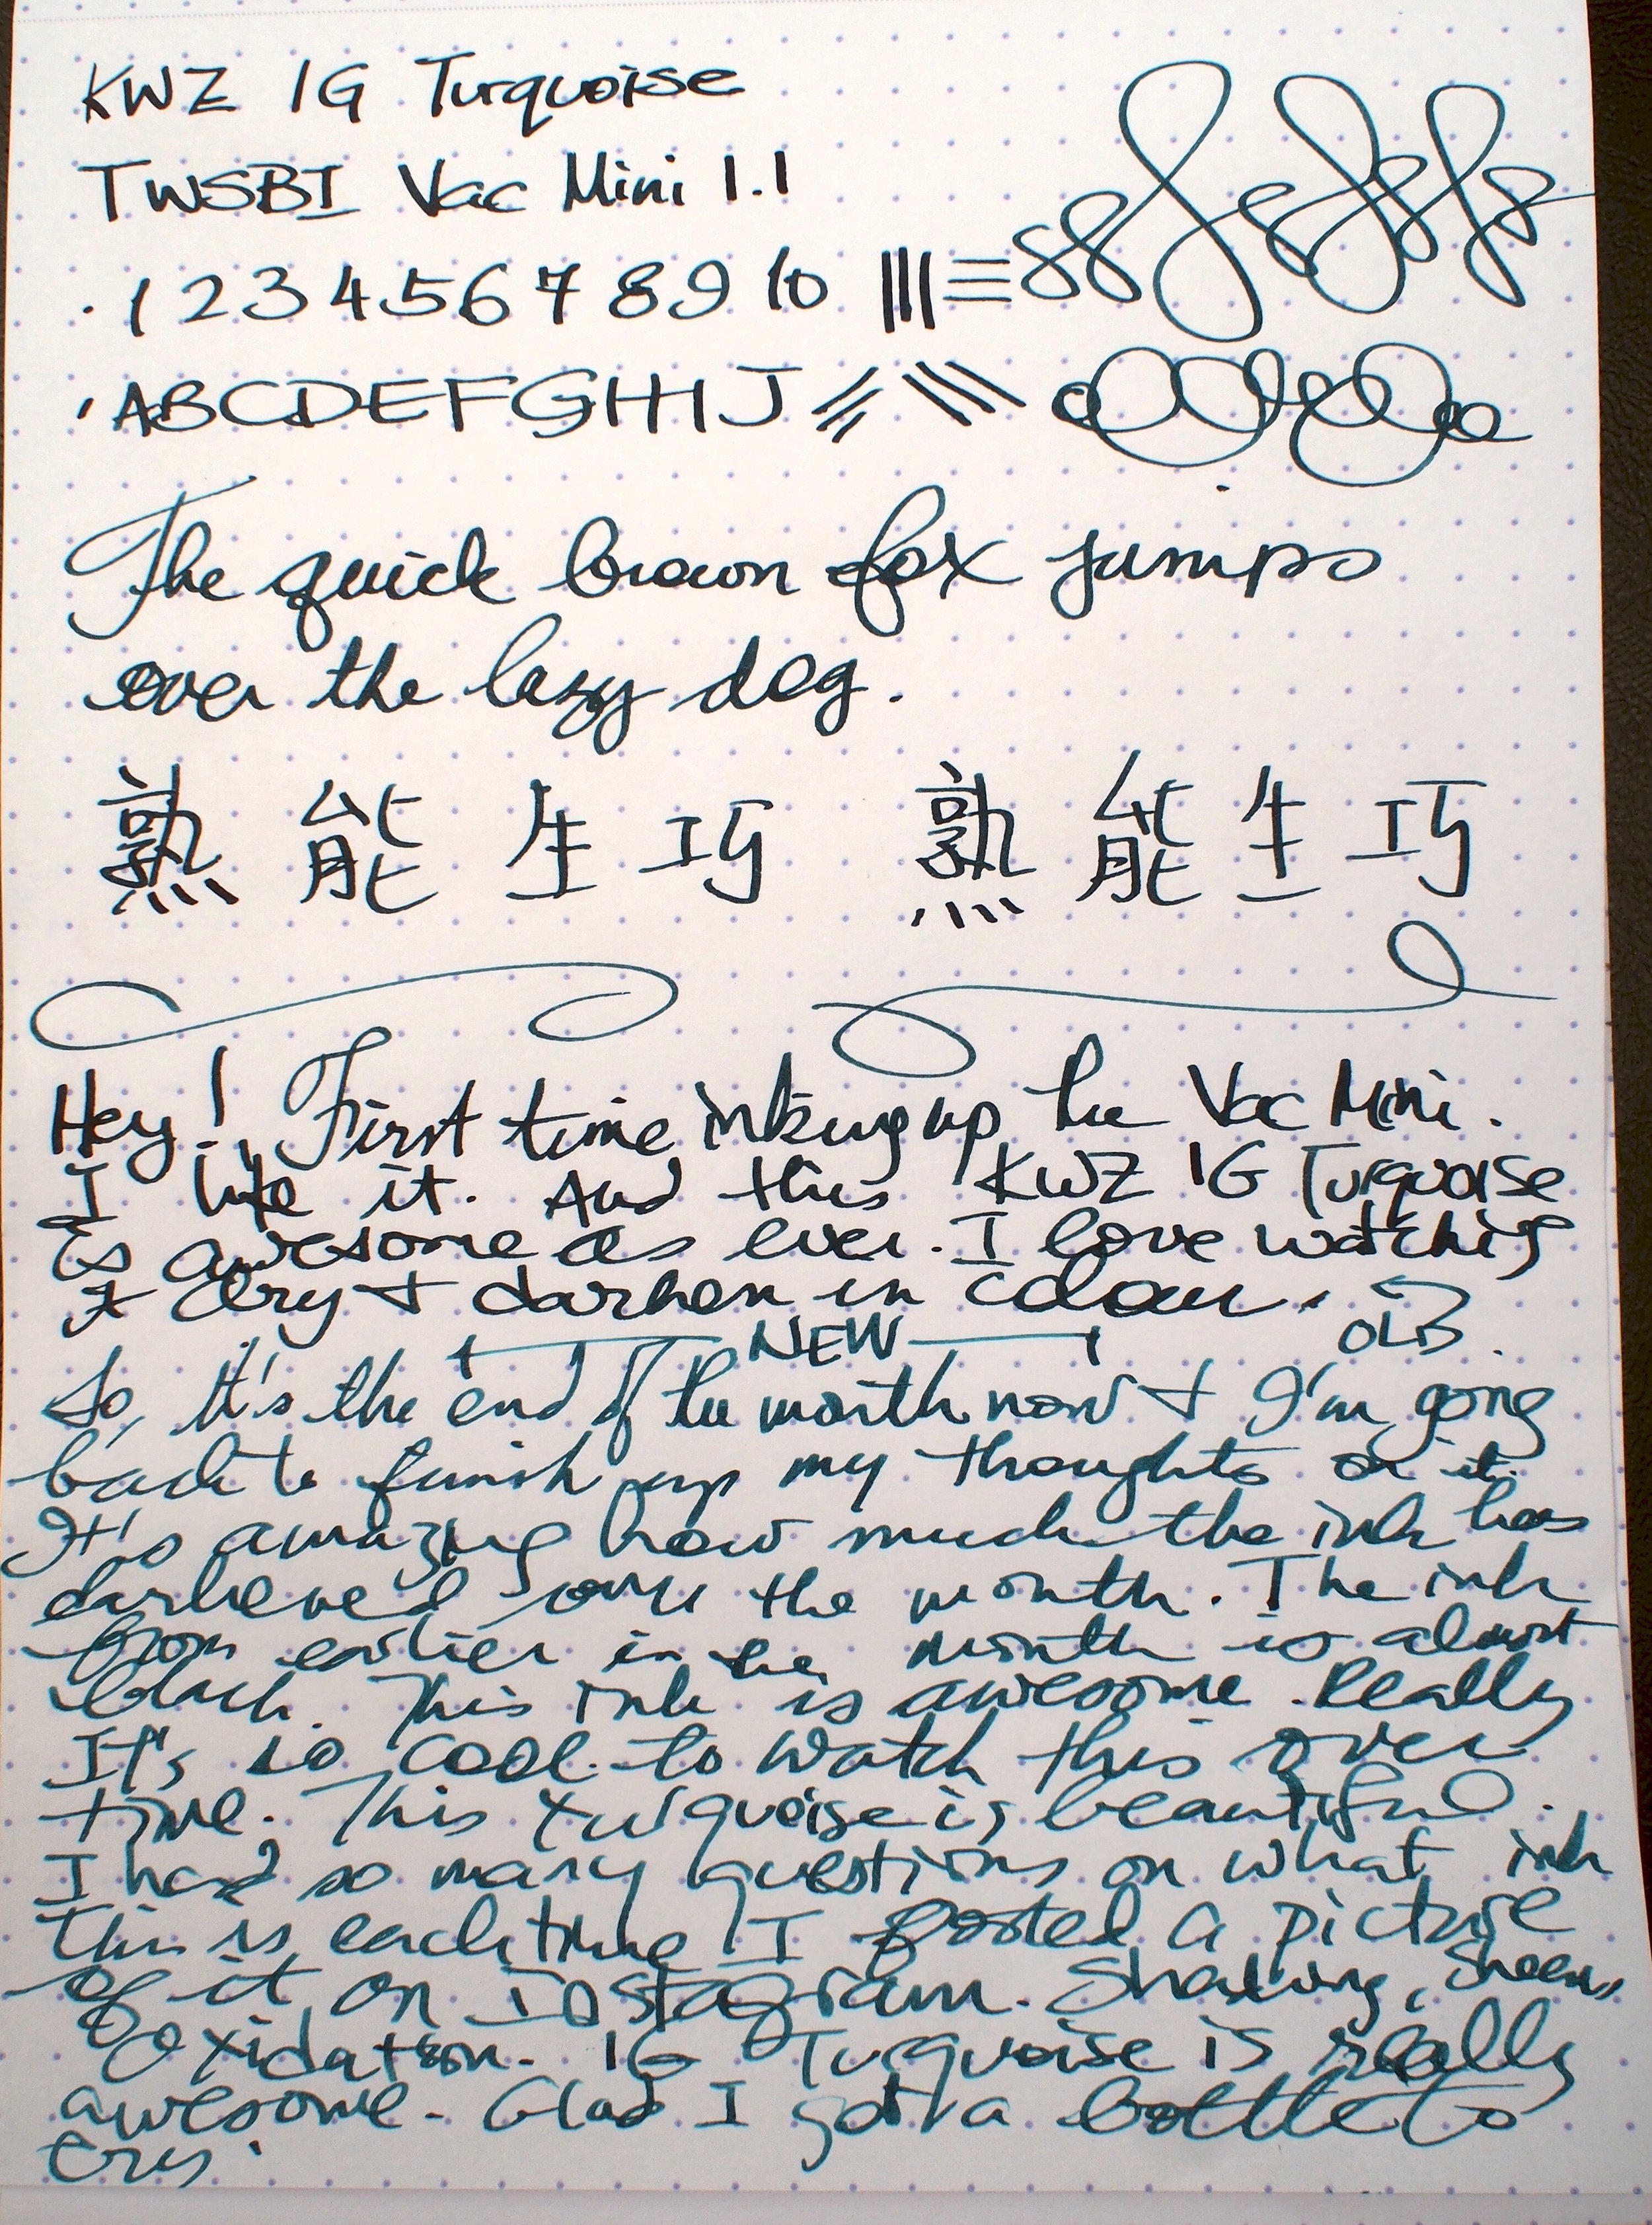 KWZ IG Turquoise
TWSBI Vac Mini 1.1
1 2 3 4 5 6 7 8 9 10
ABCDEFGHIJ
The quick brown fox jumps
over the lazy dog.
熟能生巧 熟能生巧
Hey! First time inking up the Vac Mini.
I like it. And this KWZ IG Turquoise
is awesome as ever. I love watching
it dry + darken in colour.
NEW OLD
So, It's the end of the month now + I'm going
back to finish up my thoughts on it.
It's amazing how much the ink has
darkened over the month. The ink
from earlier in the month is almost
black. This ink is awesome. Really
It's so cool to watch this over
time. This turquoise is beautiful.
I had so many questions on what ink
this is each time I posted a picture
of it on Instagram. Shading, Sheen,
Oxidation. IG Turquoise is really
awesome. Glad I got a bottle to
try.